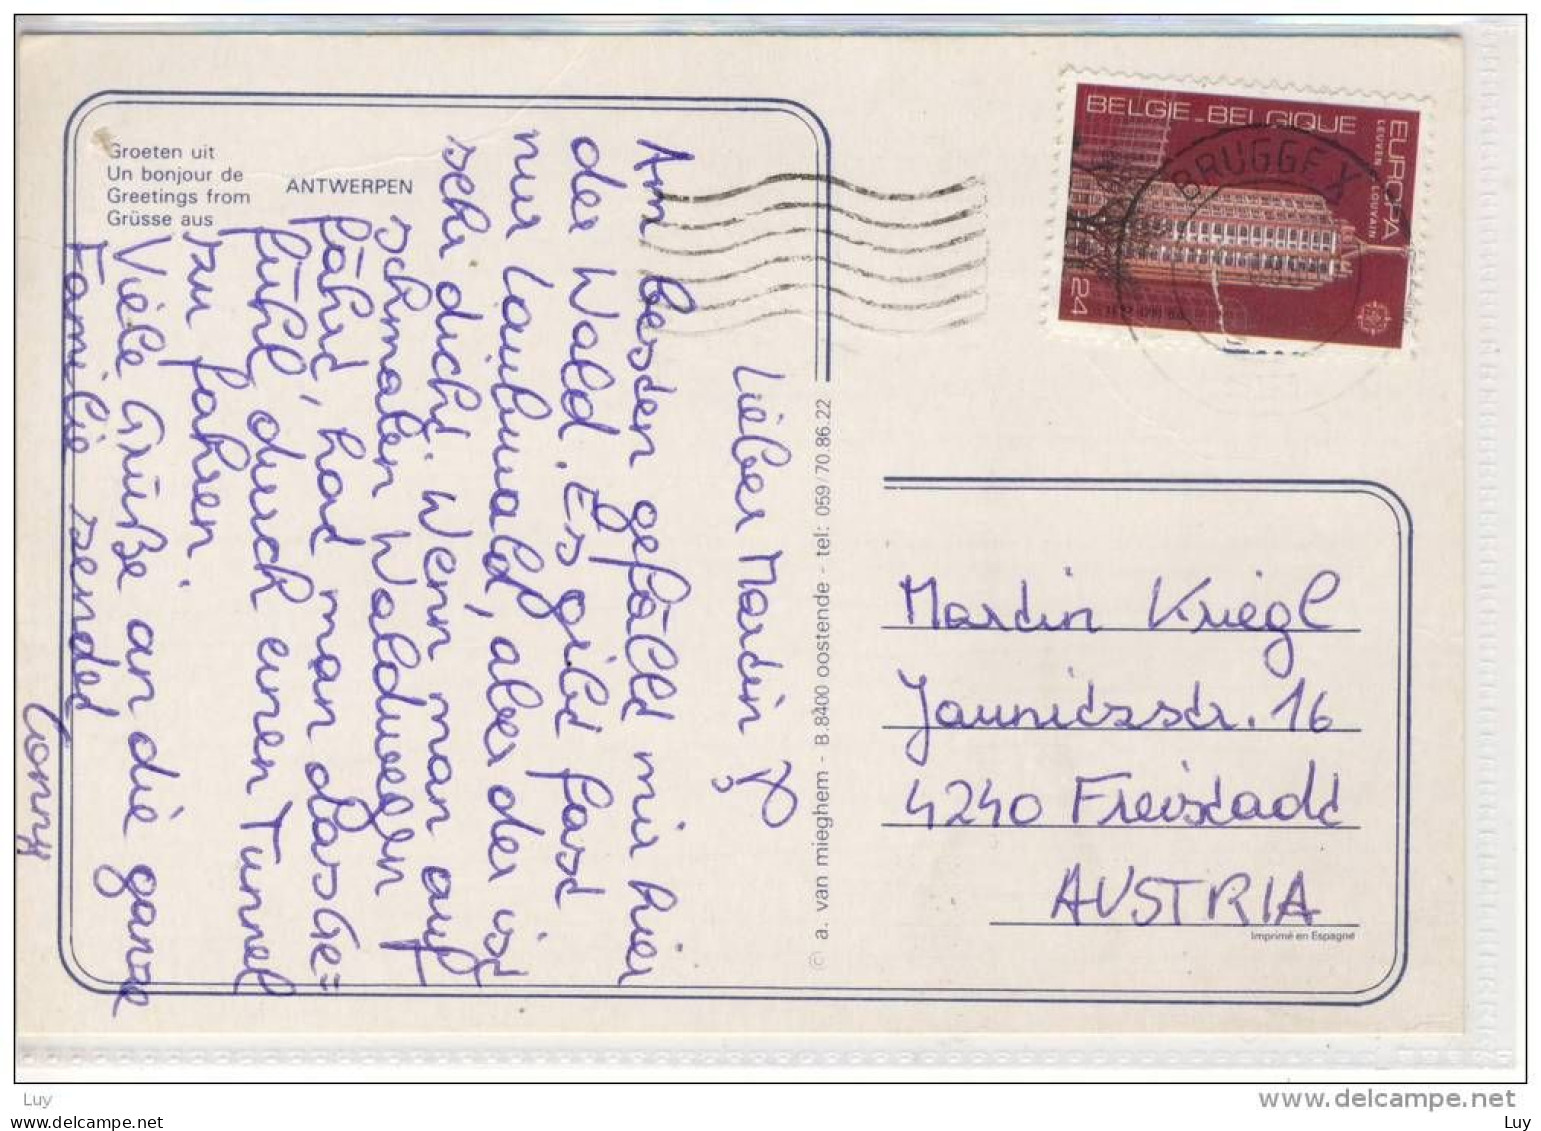 Groeten uit
Un bonjour de
Greetings from
Grüsse aus
ANTWERPEN
Lieber Martin
Am besten gefällt mir hier
der Wald. Es gibt fast
nur Laubwald, aber der ist
sehr dicht. Wenn man auf
schmalen Waldwegen
fährt, hat man das Ge=
fühl, durch einen Tunnel
zu fahren.
Viele Grüße an die ganze
Familie sendet
Conny
© a. van mieghem - B.8400 oostende - tel: 059/70.86.22
BELGIE-BELGIQUE
EUROPA
LEUVEN - LOUVAIN
24
BRUGGE X
Martin Kriegl
Jaunitzstr. 16
4240 Freistadt
AUSTRIA
Imprimé en Espagne
Luy
www.delcampe.net
Luy
www.delcampe.net
Luy